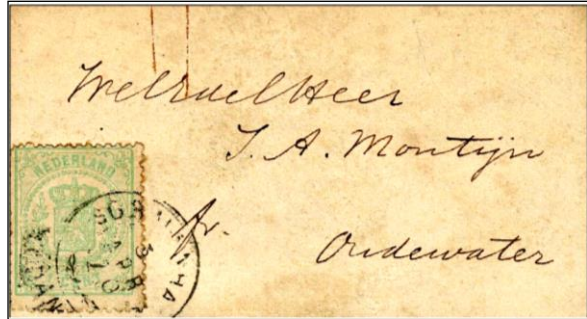 WelEdelHeer
J. A. Montijn
Oudewater
NEDERLAND